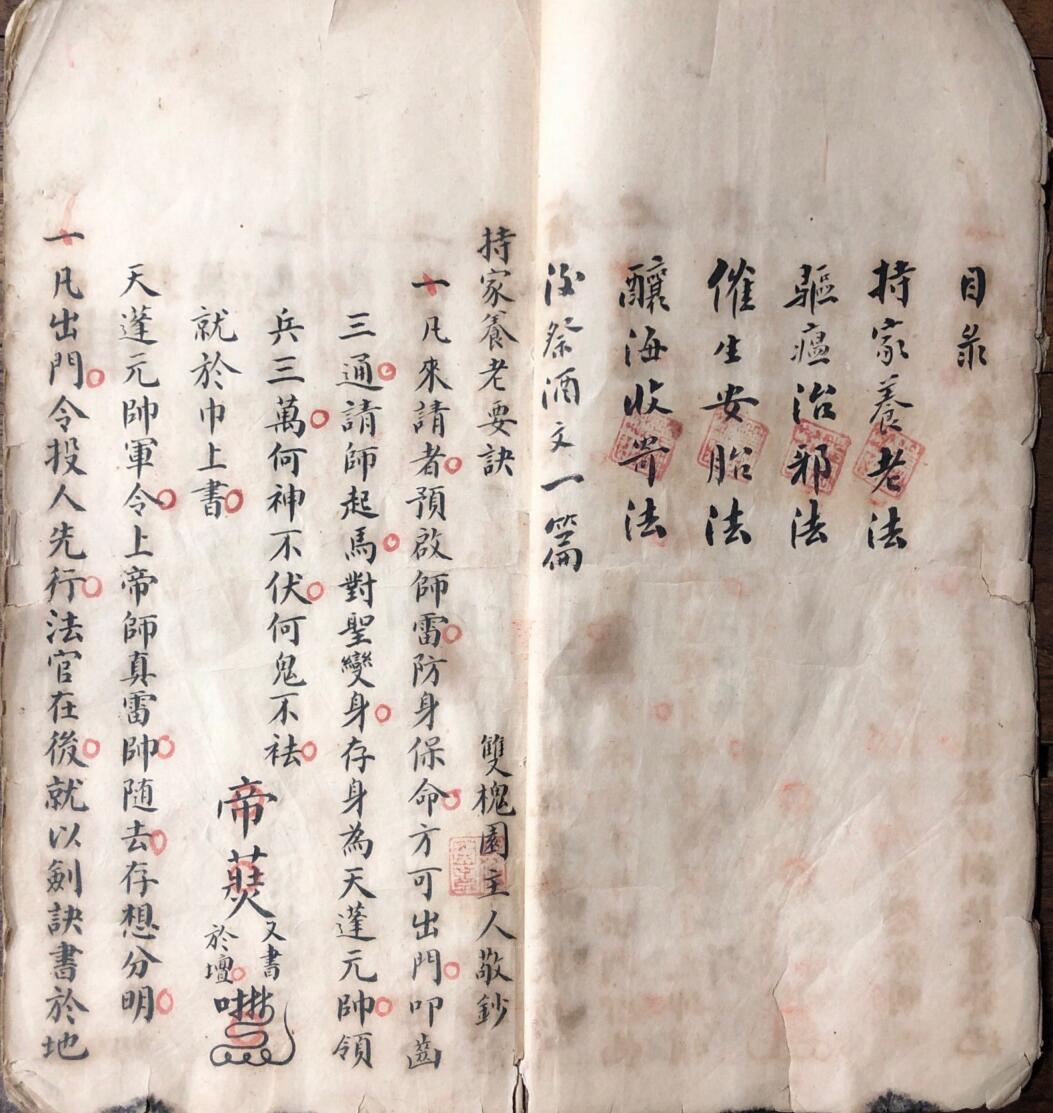 目录
持家養老法
驅瘟治邪法
催生安胎法
釀海收寄法
後祭酒文一篇
持家養老要訣 雙槐園主人敬鈔
一凡來請者預啟師雷防身保命方可出門叩齒
三通請師起馬對聖變身存身為天蓬元帥領
兵三萬何神不伏何鬼不祛
就於巾上書 帝 又書於壇
天蓬元帥軍令上帝師真雷帥隨去存想分明
一凡出門令投人先行法官在後就以劍訣書於地